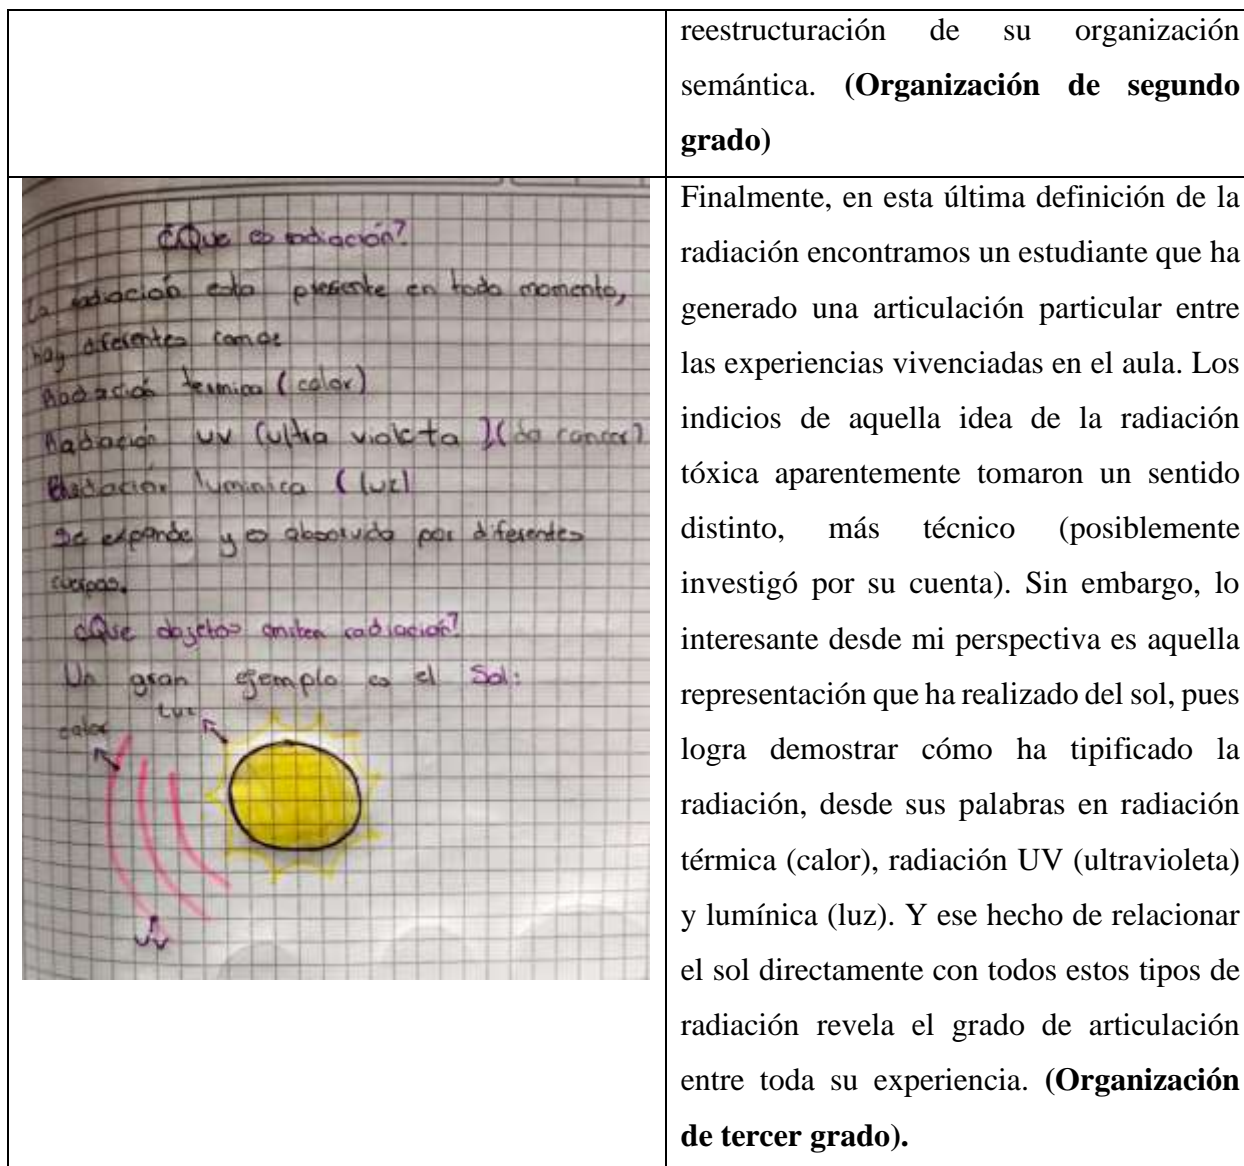 reestructuración de su organización
semántica. (Organización de segundo
grado)
¿Que es radiación?
La radiación esta presente en todo momento,
hay diferentes como:
Radiación termica (calor)
Radiación UV (ultra violeta )(da cancer)
Radiación luminica (luz)
Se expande y es absorvida por diferentes
cuerpos.
¿Que objetos emiten radiación?
Un gran ejemplo es el Sol:
calor
Luz
UV
Finalmente, en esta última definición de la
radiación encontramos un estudiante que ha
generado una articulación particular entre
las experiencias vivenciadas en el aula. Los
indicios de aquella idea de la radiación
tóxica aparentemente tomaron un sentido
distinto, más técnico (posiblemente
investigó por su cuenta). Sin embargo, lo
interesante desde mi perspectiva es aquella
representación que ha realizado del sol, pues
logra demostrar cómo ha tipificado la
radiación, desde sus palabras en radiación
térmica (calor), radiación UV (ultravioleta)
y lumínica (luz). Y ese hecho de relacionar
el sol directamente con todos estos tipos de
radiación revela el grado de articulación
entre toda su experiencia. (Organización
de tercer grado).